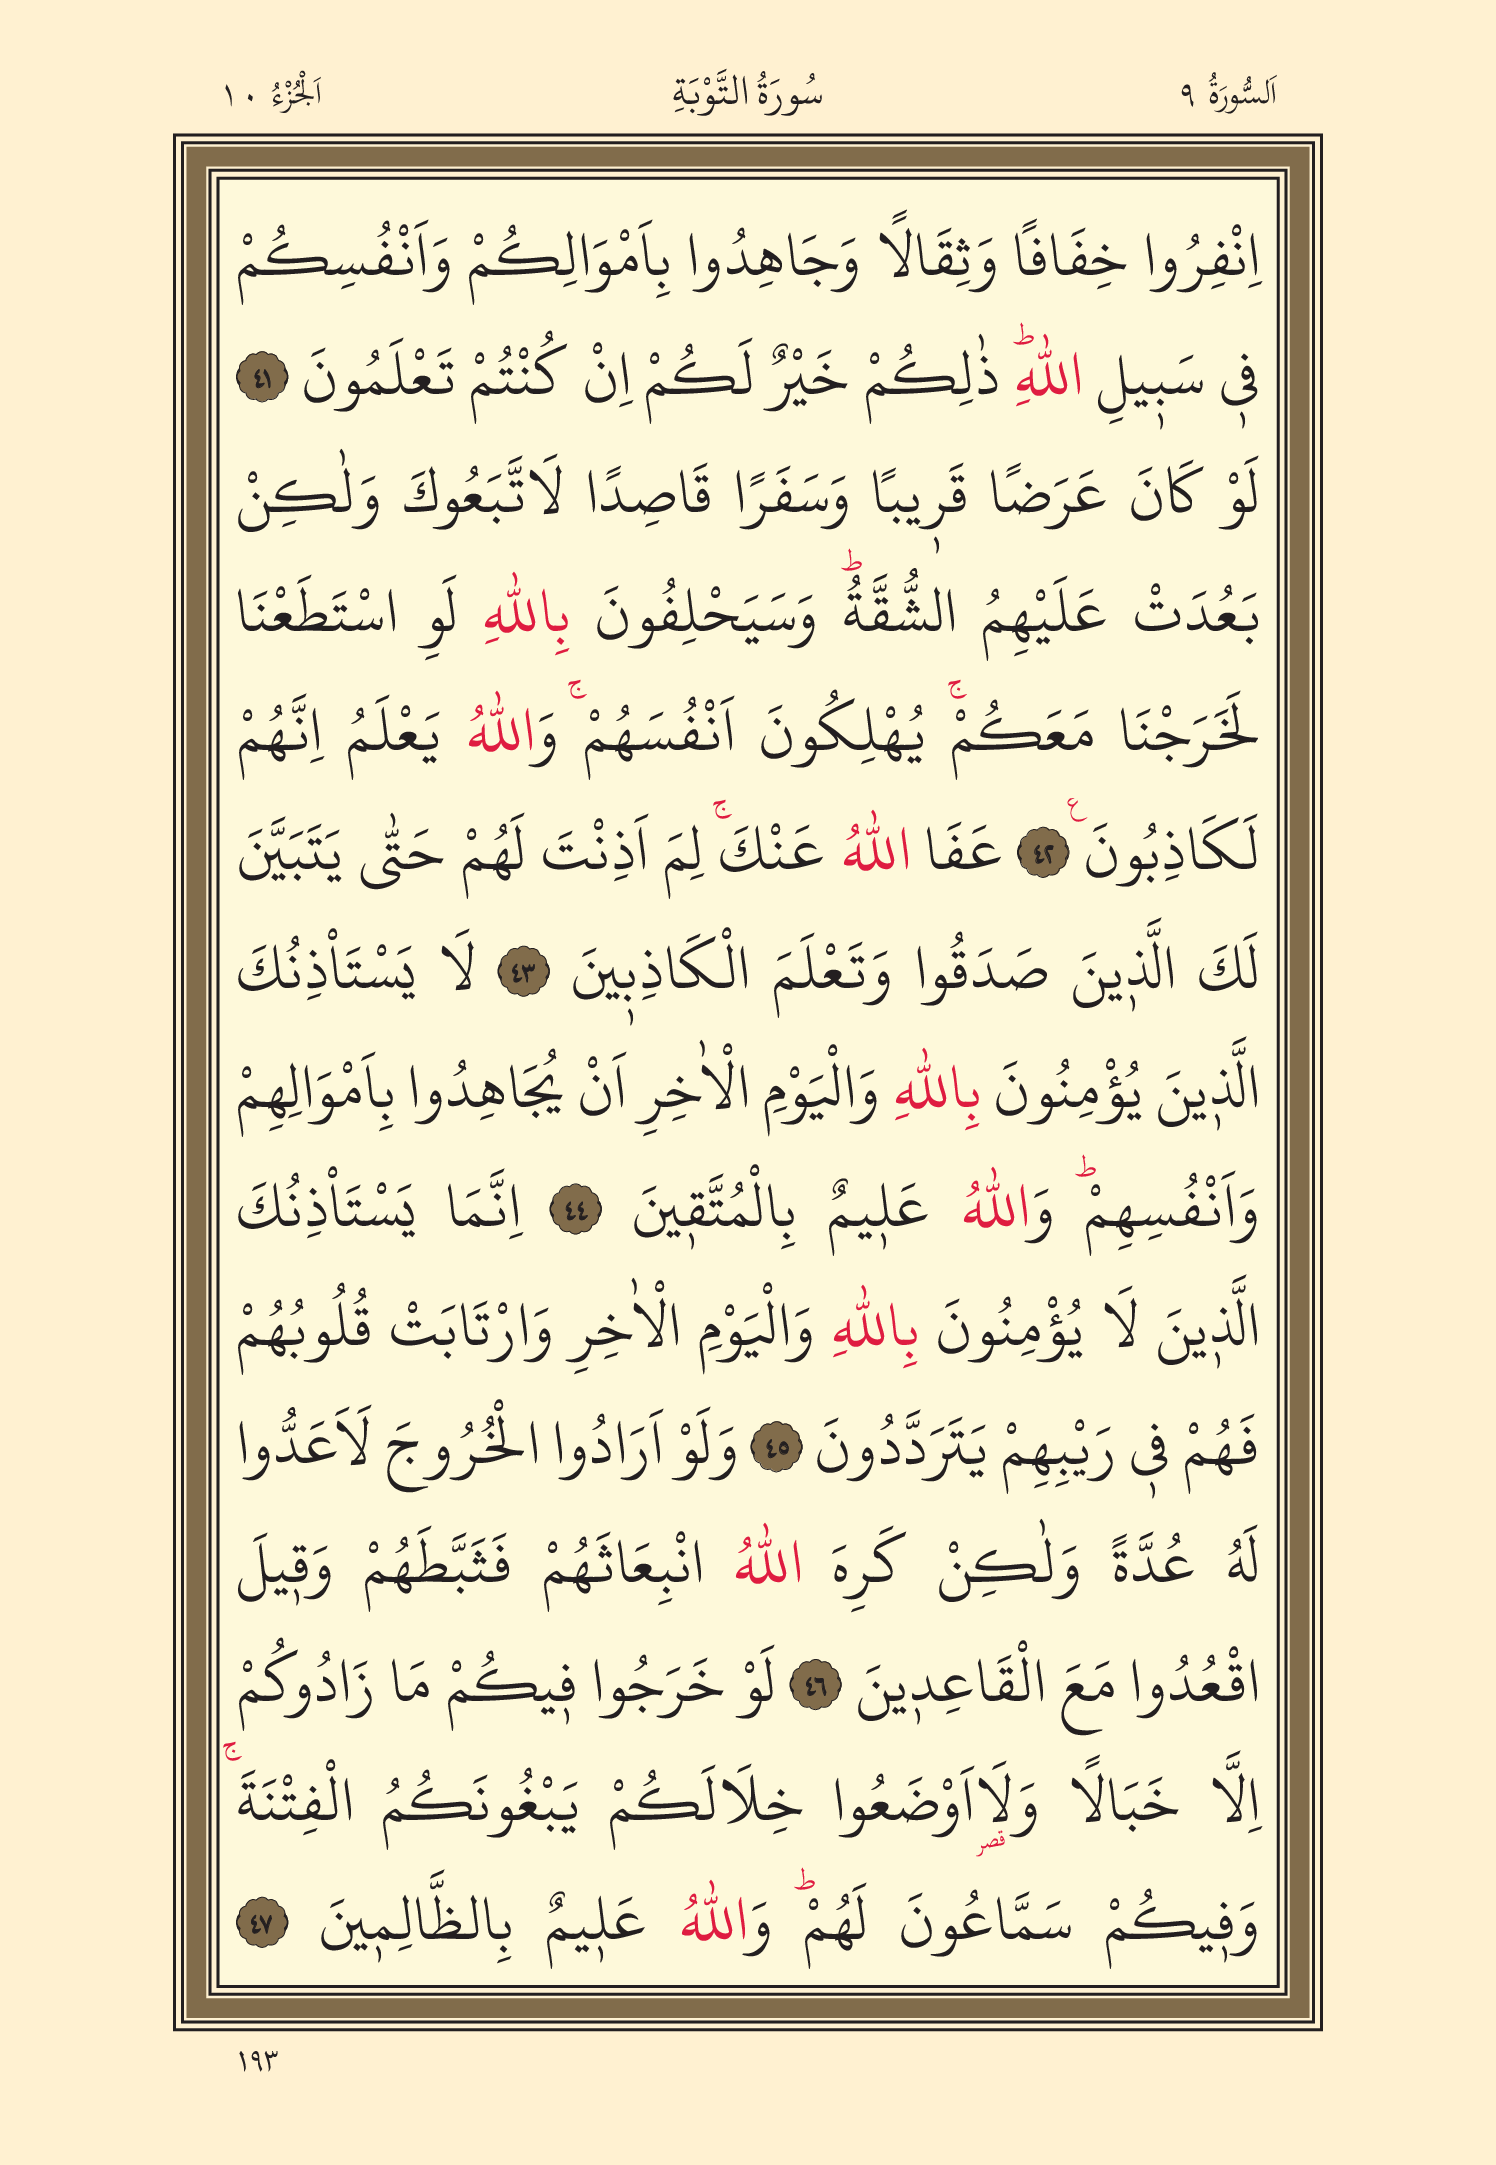 اَلسُّورَةُ ٩ سُورَةُ التَّوْبَةِ اَلْجُزْءُ ١٠
اِنْفِرُوا خِفَافًا وَثِقَالًا وَجَاهِدُوا بِاَمْوَالِكُمْ وَاَنْفُسِكُمْ
فٖي سَبٖيلِ اللّٰهِؕ ذٰلِكُمْ خَيْرٌ لَكُمْ اِنْ كُنْتُمْ تَعْلَمُونَ ٤١
لَوْ كَانَ عَرَضًا قَرٖيبًا وَسَفَرًا قَاصِدًا لَاتَّبَعُوكَ وَلٰكِنْ
بَعُدَتْ عَلَيْهِمُ الشُّقَّةُؕ وَسَيَحْلِفُونَ بِاللّٰهِ لَوِ اسْتَطَعْنَا
لَخَرَجْنَا مَعَكُمْۚ يُهْلِكُونَ اَنْفُسَهُمْۚ وَاللّٰهُ يَعْلَمُ اِنَّهُمْ
لَكَاذِبُونَ ع ٤٢ عَفَا اللّٰهُ عَنْكَۚ لِمَ اَذِنْتَ لَهُمْ حَتّٰى يَتَبَيَّنَ
لَكَ الَّذٖينَ صَدَقُوا وَتَعْلَمَ الْكَاذِبٖينَ ٤٣ لَا يَسْتَاْذِنُكَ
الَّذٖينَ يُؤْمِنُونَ بِاللّٰهِ وَالْيَوْمِ الْاٰخِرِ اَنْ يُجَاهِدُوا بِاَمْوَالِهِمْ
وَاَنْفُسِهِمْؕ وَاللّٰهُ عَلٖيمٌ بِالْمُتَّقٖينَ ٤٤ اِنَّمَا يَسْتَاْذِنُكَ
الَّذٖينَ لَا يُؤْمِنُونَ بِاللّٰهِ وَالْيَوْمِ الْاٰخِرِ وَارْتَابَتْ قُلُوبُهُمْ
فَهُمْ فٖي رَيْبِهِمْ يَتَرَدَّدُونَ ٤٥ وَلَوْ اَرَادُوا الْخُرُوجَ لَاَعَدُّوا
لَهُ عُدَّةً وَلٰكِنْ كَرِهَ اللّٰهُ انْبِعَاثَهُمْ فَثَبَّطَهُمْ وَقٖيلَ
اقْعُدُوا مَعَ الْقَاعِدٖينَ ٤٦ لَوْ خَرَجُوا فٖيكُمْ مَا زَادُوكُمْ
اِلَّا خَبَالًا وَلَااَوْضَعُوا خِلَالَكُمْ يَبْغُونَكُمُ الْفِتْنَةَۚ
قصر
وَفٖيكُمْ سَمَّاعُونَ لَهُمْؕ وَاللّٰهُ عَلٖيمٌ بِالظَّالِمٖينَ ٤٧
١٩٣